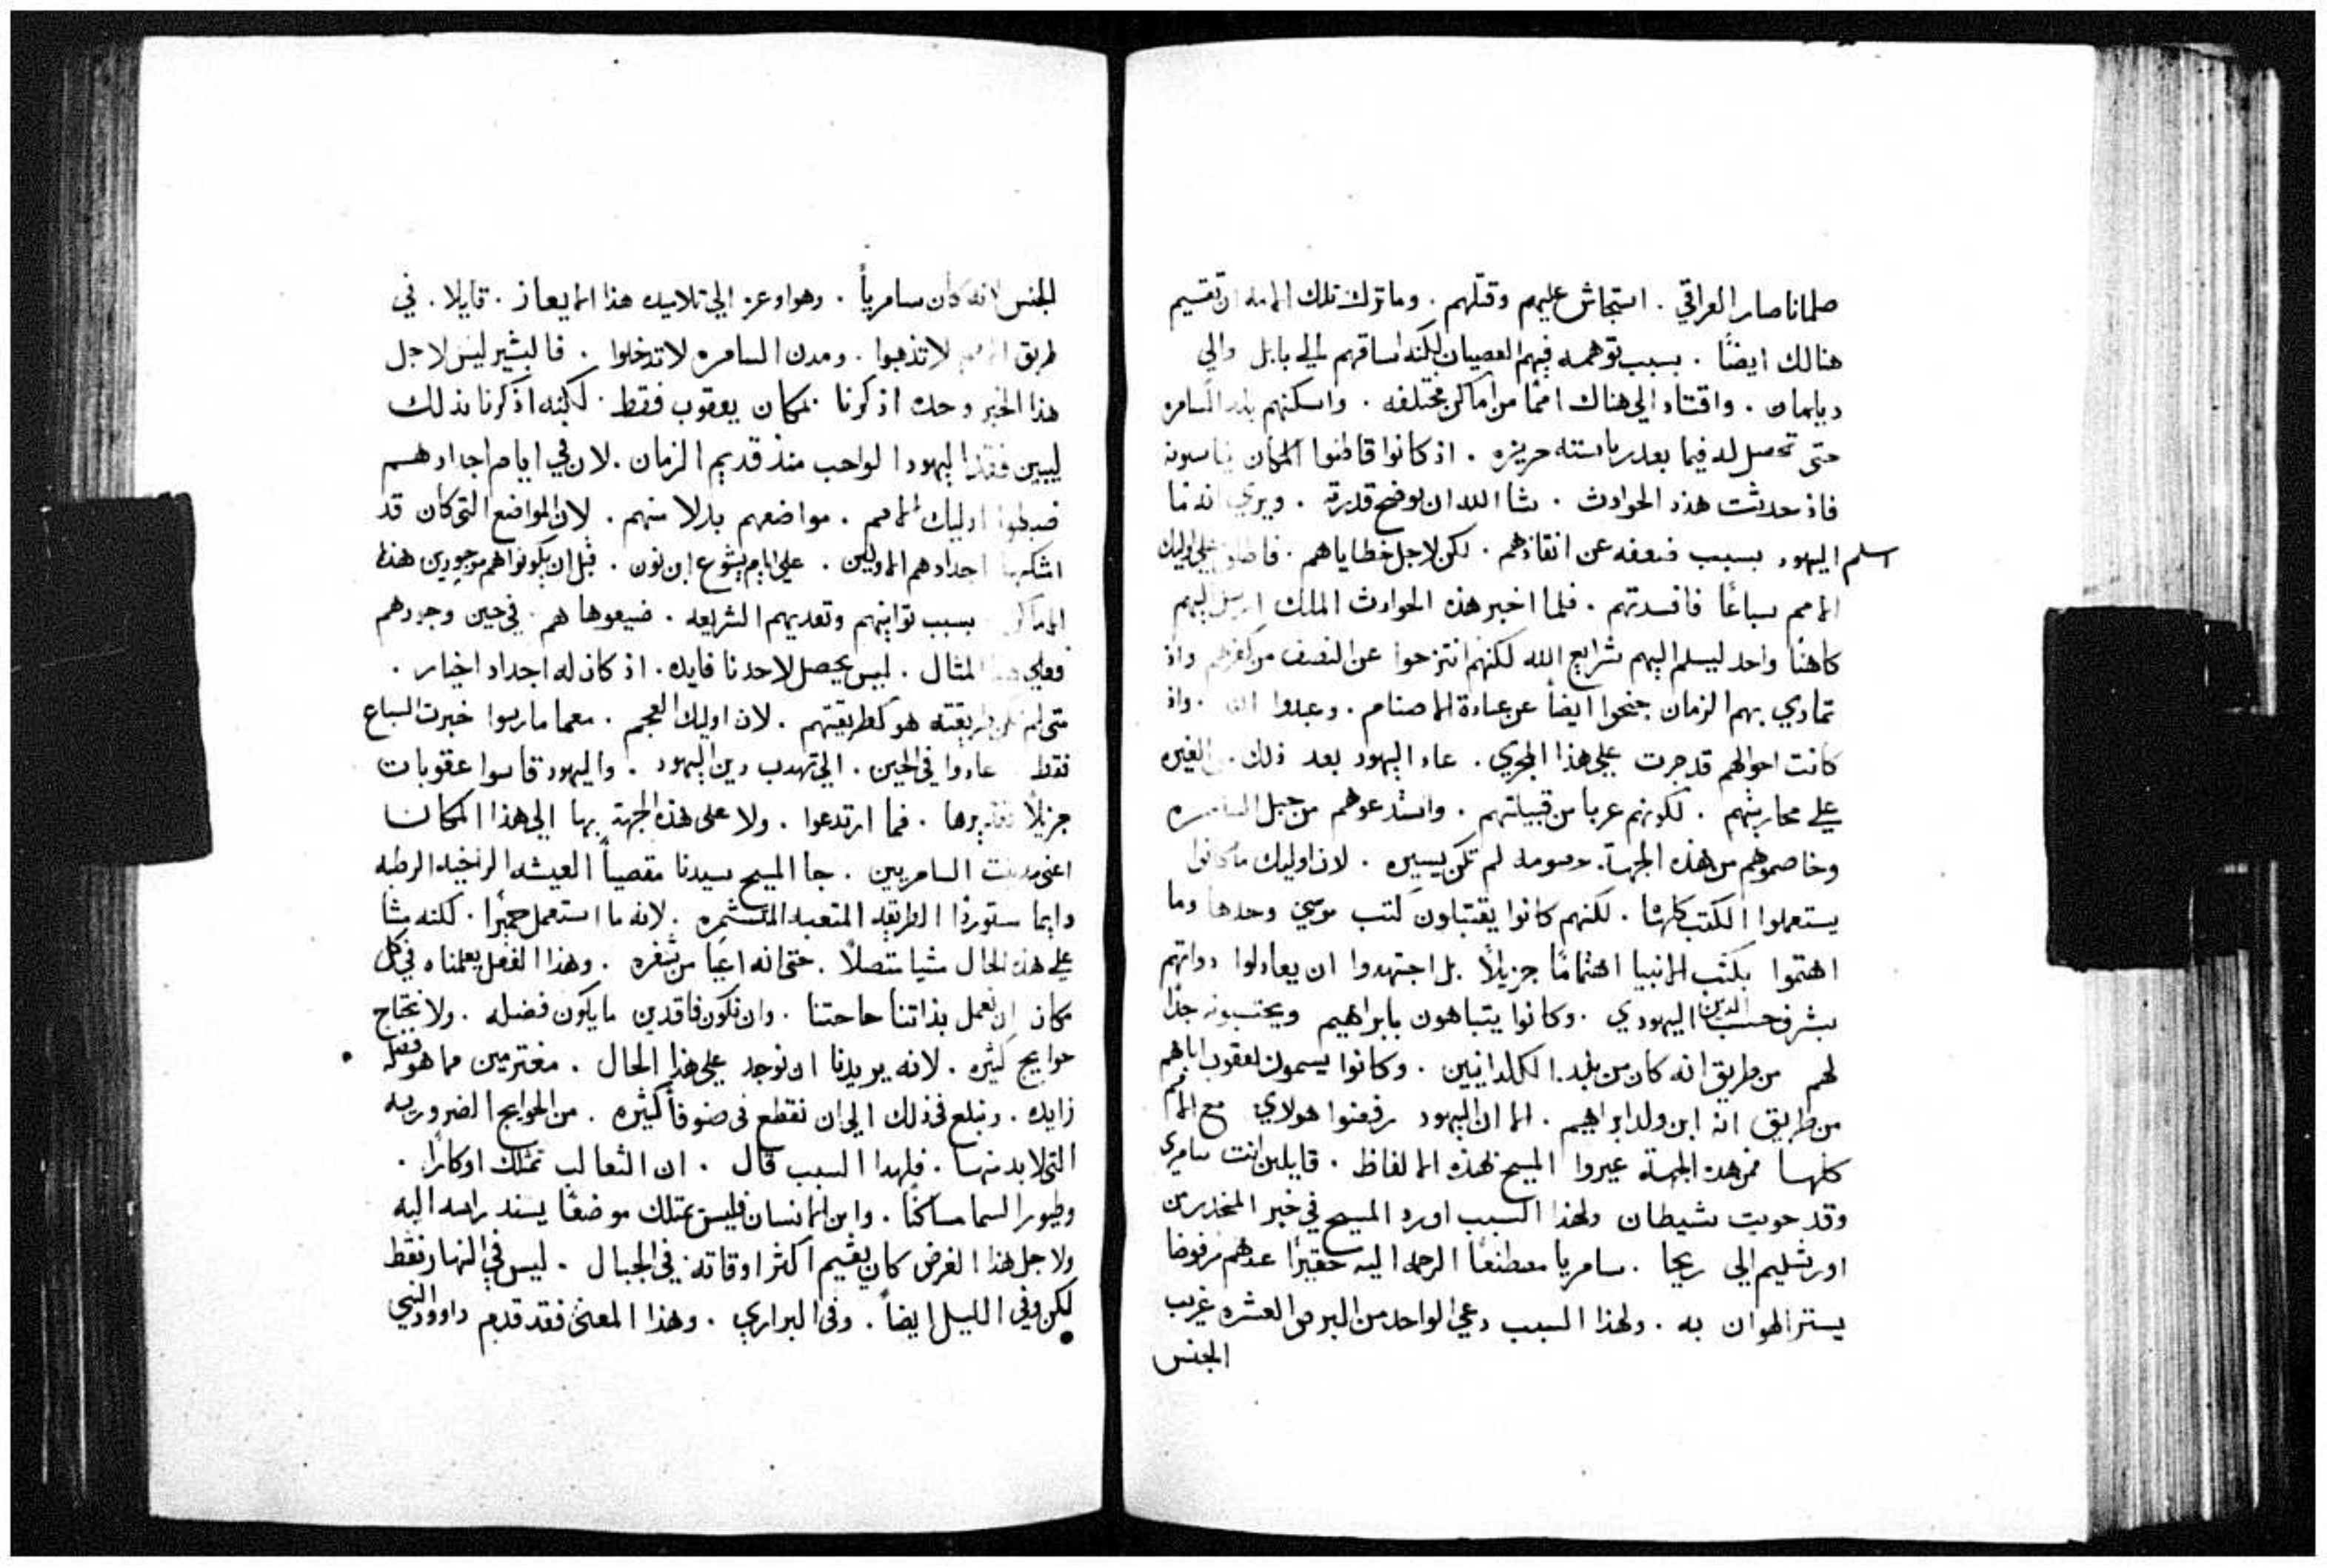 صلماناصار العراقي . استجاش عليهم وقتلهم . وماترك تلك الامه ان تقسيم
هنالك ايضًا . بسبب توهمه فيهم العصيان لكنه اساقهم الي بابل والي
وياهمان . واقتاد الي هناك اممًا من اماكن مختلفه . واسكنهم بلد السامره
حتى تحصل له فيما بعد رياسته حريزه . اذ كانوا قاطنوا المكان
فاذ حدثت هذه الحوادث . شا الله ان يوضح قدرته . ويري انه ما
اسلم اليهود بسبب ضعفه عن انقاذهم . لكن لاجل خطاياهم . فاطلق علي اوليك
الامم سباعًا فافسدتهم . فلما اخبر هذه الحوادث الملك ارسل اليهم
كاهنًا واحد ليسلم اليهم شرايع الله لكنهم انتزحوا عن النصف من كفرهم واذ
تمادي بهم الزمان جنحوا ايضاً عن عبادة الاصنام . وعبدوا الله . واذ
كانت احوالهم قد جرت علي هذا المجري . عاد اليهود بعد ذلك .
علي محاربتهم . لكونهم غربا من قبيلتهم . واستدعوهم من جبل السامره
وخاصموهم من هذه الجهة . خصومه لم تكن يسيره . لان اوليك ما كانوا
يستعملوا الكتب كلها . لكنهم كانوا يقتبلون كتب موسي وحدها وما
اهتموا بكتب الانبيا اهتمامًا جزيلاً بل اجتهدوا ان يعادلوا ذواتهم
بشرف حسب الدين اليهودي . وكانوا يتباهون بابراهيم ويحتسبونه جدًا
لهم من طريق انه كان من بلد الكلدانيين . وكانوا يسمون يعقوب اباهم
من طريق انه ابن ولد ابراهيم . الا ان اليهود رفضوا هولاي مع الامم
كلها فمن هذه الجهة عيروا المسيح بهذه الالفاظ . قايلين انت سامري
وقد حويت شيطان ولهذا السبب اورد المسيح في خبر المنحدر من
اورشليم الي ريحا . سامريا مصطنعًا الرحمه اليه حقيرًا عندهم مرفوضا
يستر الهوان به . ولهذا السبب دعي الواحد من البرص العشره غريب
الجنس
الجنس لانه كان سامرياً . وهو اوعز الي تلاميذه هذا الايعاز . قايلا . في
طريق الامم لا تذهبوا . ومدن السامره لا تدخلوا . فالبشير ليس لاجل
هذا الخبر وحده اذكرنا بمكان يعقوب فقط . لكنه اذكرنا بذلك
ليبين فقد اليهود الواجب منذ قديم الزمان . لان في ايام اجدادهم
ضبطوا اوليك الامم . مواضعهم بدلا منهم . لان المواضع التي كان قد
امتلكها اجدادهم الاولين . علي ايام يشوع ابن نون . قبل ان يكونوا هم موجودين بهذه
الاماكن بسبب توانيهم وتعديهم الشريعه . ضيعوها هم . في حين وجودهم
فعلي هذا المثال . ليس يحصل لاحدنا فايده . اذ كان له اجداد اخيار .
متي لم تكن طريقته هو كطريقتهم . لان اوليك العجم . معما مارسوا خبرت السباع
فقط عادوا في الحين . الي تهذب دين اليهود . واليهود قاسوا عقوبات
جزيلاً تقديرها . فما ارتدعوا . ولا على هذه الجهة بها الي هذا المكان
اعني مدينت السامريين . جا المسيح سيدنا مقصياً العيشه الراخيه الرطبه
دايما ستوردًا الطريقه المتعبه المتشمره . لانه ما استعمل حميرًا . لكنه مشا
علي هذه الحال مشيا متصلاً . حتى انه اعيا من سفره . وهذا الفعل يعلمناه في كل
مكان ان نعمل بذاتنا حاجتنا . وان نكون فاقدين ما يكون فضله . ولا نحتاج
حوايج كثيره . لانه يريدنا ان نوجد علي هذا الحال . مغترمين مما هو فضله
زايده . ونبلع في ذلك الي ان نقطع في صنوفاً كثيره . من الحوايج الضروريه
التي لابد منها . فلهذا السبب قال . ان الثعالب تمتلك اوكارًا .
وطيور السما مساكنًا . وابن الانسان فليس يمتلك موضعًا يسند راسه اليه
ولاجل هذا الغرض كان يقيم اكثر اوقاته في الجبال . ليس في النهار فقط
لكن وفي الليل ايضاً . وفي البراري . وهذا المعني فقد قدم داوود النبي